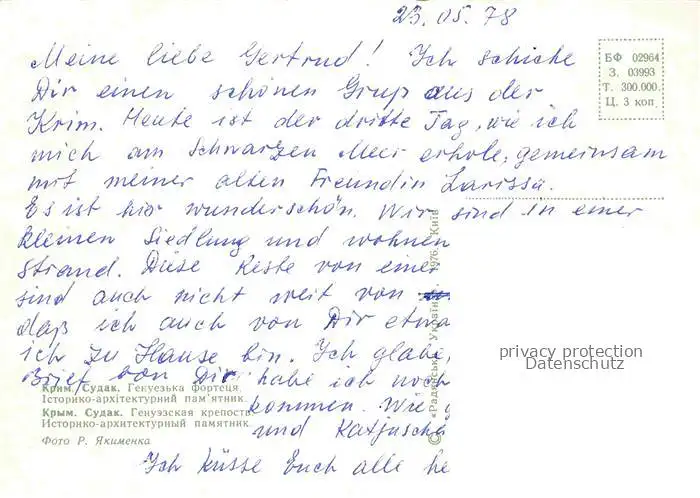 23.05.78
Meine liebe Gertrud! Ich schicke
Dir einen schönen Grup aus der
Krim. Heute ist der dritte Tag, wie ich
mich am Schwarzen Meer erhole, gemeinsam
mit meiner alten Freundin Larissa.
Es ist hier wunderschön. Wir sind in einer
kleinen Siedlung und wohnen
Strand. Diese Reste von einer
sind auch nicht weit von
daß ich auch von Dir etwa
ich zu Hause bin. Ich glabe,
Brief von Dir habe ich noch
kommen. Wie
und Katjuscha
Ich küsse Euch alle he
БФ 02964
З. 03993
Т. 300.000.
Ц. 3 коп.
Крим. Судак. Генуезька фортеця.
Історико-архітектурний пам'ятник.
Крым. Судак. Генуэзская крепость.
Историко-архитектурный памятник.
Фото Р. Якименка
© «Радянська Україна», 1976, Київ
privacy protection
Datenschutz